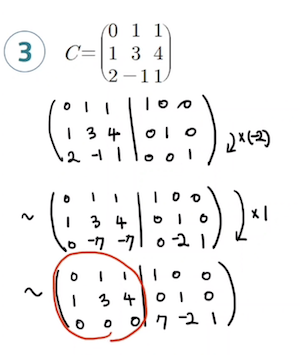 3
C=
0 1 1
1 3 4
2 -1 1
0 1 1 | 1 0 0
1 3 4 | 0 1 0
2 -1 1 | 0 0 1
×(-2)
~
0 1 1 | 1 0 0
1 3 4 | 0 1 0
0 -7 -7 | 0 -2 1
×1
~
0 1 1 | 1 0 0
1 3 4 | 0 1 0
0 0 0 | 7 -2 1